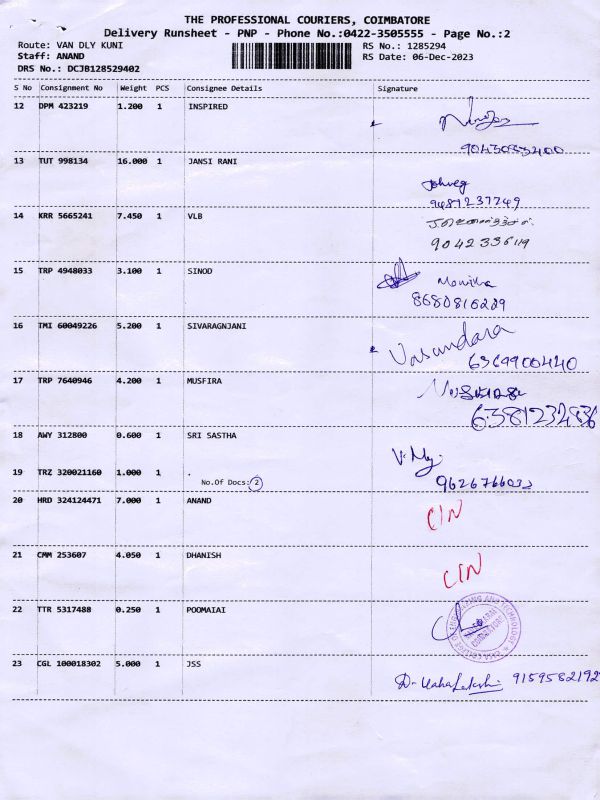 THE PROFESSIONAL COURIERS, COIMBATORE
Delivery Runsheet - PNP - Phone No.:0422-3505555 - Page No.:2
Route: VAN DLY KUNI RS No.: 1285294
Staff: ANAND RS Date: 06-Dec-2023
DRS No.: DCJB128529402
S No Consignment No Weight PCS Consignee Details Signature
12 DPM 423219 1.200 1 INSPIRED
13 TUT 998134 16.000 1 JANSI RANI
9487237749
14 KRR 5665241 7.450 1 VLB
9042336119
15 TRP 4948033 3.100 1 SINOD
Monika
8680816289
16 TMI 60049226 5.200 1 SIVARAGNJANI
Vasundara
6369900440
17 TRP 7640946 4.200 1 MUSFIRA
6381232836
18 AWY 312800 0.600 1 SRI SASTHA
19 TRZ 320021160 1.000 1 .
No.Of Docs: 2
20 HRD 324124471 7.000 1 ANAND
CIN
21 CMM 253607 4.050 1 DHANISH
CIN
22 TTR 5317488 0.250 1 POOMAIAI
23 CGL 100018302 5.000 1 JSS
9159582192